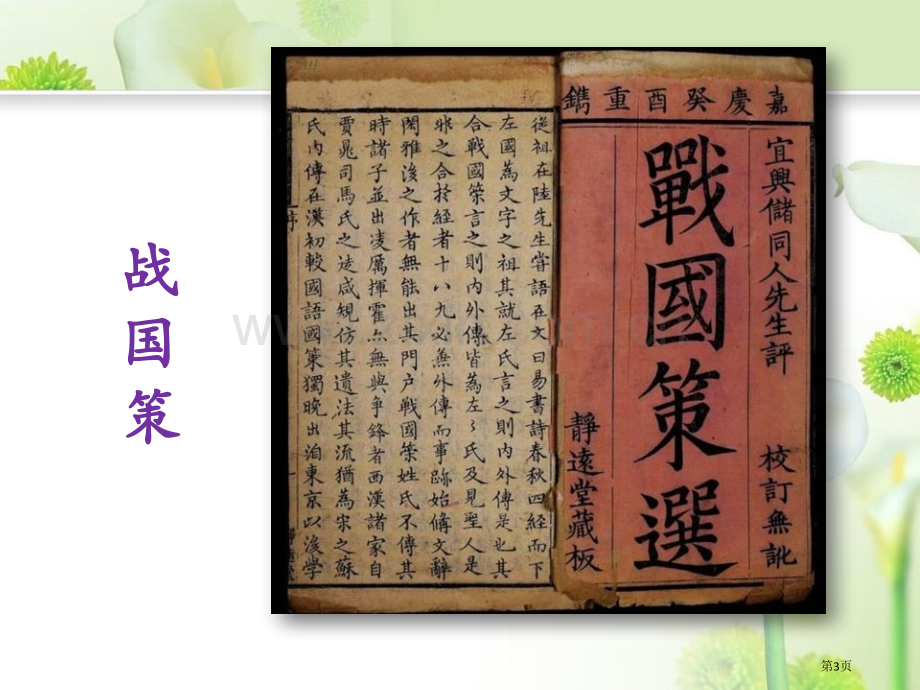 战国策
嘉慶癸酉重鐫
宜興儲同人先生評 校訂無訛
戰國策選
靜遠堂藏板
從祖在陸先生嘗語在文曰易書詩春秋四經而下
左國為文字之祖其就左氏言之則內外傳是也其
合戰國策言之則內外傳皆為左〻氏及見聖人是
非之合於經者十八九必無外傳而事跡始備文辭
閎雅後之作者無能出其門户戰國策姓氏不傳其
時諸子並出凌厲揮霍亦無與爭鋒者西漢諸家自
賈晁司馬氏之徒咸規仿其遺法其流猶為宋之蘇
氏內傳在漢初較國語國策獨晚出洎東京以後學
序
一
第3页